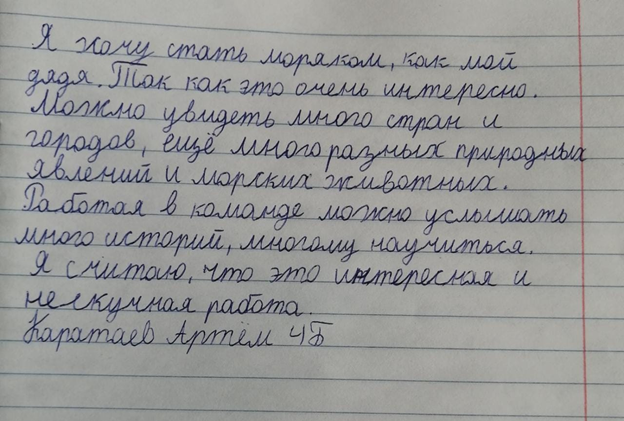 Я хочу стать моряком, как мой
дядя. Так как это очень интересно.
Можно увидеть много стран и
городов, ещё много разных природных
явлений и морских животных.
Работая в команде можно услышать
много историй, многому научиться.
Я считаю, что это интересная и
нескучная работа.
Каратаев Артём 4Б